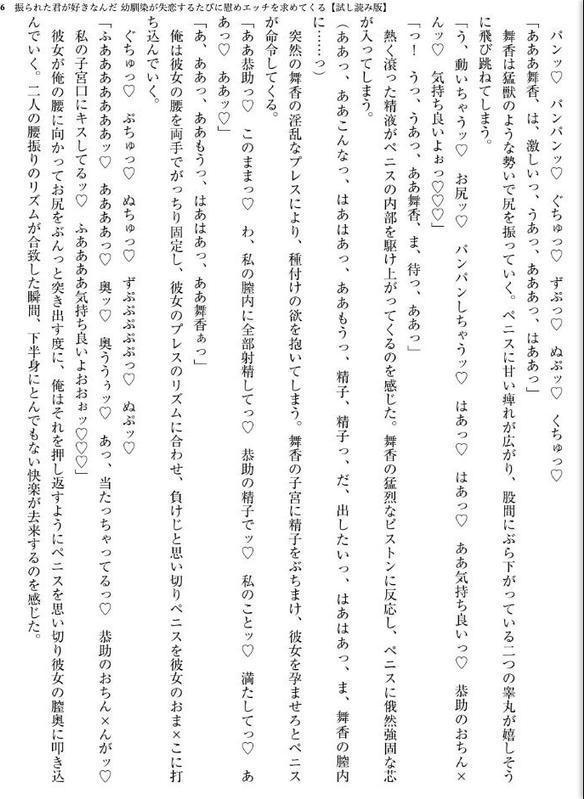 6　振られた君が好きなんだ 幼馴染が失恋するたびに慰めエッチを求めてくる【試し読み版】
パンッ♡　パンパンッ♡　ぐちゅっ♡　ずぷっ♡　ぬぷッ♡　くちゅっ♡
「あああ舞香、は、激しいっ、うあっ、あああっ、はああっ」
舞香は猛獣のような勢いで尻を振っていく。ペニスに甘い痺れが広がり、股間にぶら下がっている二つの睾丸が嬉しそう
に飛び跳ねてしまう。
「う、動いちゃうッ♡　お尻ッ♡　バンバンしちゃうッ♡　はあっ♡　はあっ♡　ああ気持ち良いっ♡　恭助のおちん×
んッ♡　気持ち良いよぉっ♡♡♡」
「っ！　うっ、うあっ、ああ舞香、ま、待っ、ああっ」
熱く滾った精液がペニスの内部を駆け上がってくるのを感じた。舞香の猛烈なピストンに反応し、ペニスに俄然強固な芯
が入ってしまう。
（ああっ、ああこんなっ、はあはあっ、ああもうっ、精子、精子っ、だ、出したいっ、はあはあっ、ま、舞香の膣内
に……っ）
突然の舞香の淫乱なプレスにより、種付けの欲を抱いてしまう。舞香の子宮に精子をぶちまけ、彼女を孕ませろとペニス
が命令してくる。
「ああ恭助っ♡　このままっ♡　わ、私の膣内に全部射精してっ♡　恭助の精子でッ♡　私のことッ♡　満たしてっ♡　あ
あっ♡　ああッ♡」
「あ、ああっ、ああもうっ、はあはあっ、ああ舞香ぁっ」
俺は彼女の腰を両手でがっちり固定し、彼女のプレスのリズムに合わせ、負けじと思い切りペニスを彼女のおま×こに打
ち込んでいく。
ぐちゅっ♡　ぶちゅっ♡　ぬちゅっ♡　ずぷぷぷぷぷっ♡　ぬぷッ♡
「ふああああああぁッ♡　ああああっ♡　奥ッ♡　奥ううぅッ♡　あっ、当たっちゃってるっ♡　恭助のおちん×んがッ♡
私の子宮口にキスしてるッ♡　ふああああ気持ち良いよおおぉッ♡♡♡」
彼女が俺の腰に向かってお尻をぶんっと突き出す度に、俺はそれを押し返すようにペニスを思い切り彼女の膣奥に叩き込
んでいく。二人の腰振りのリズムが合致した瞬間、下半身にとんでもない快楽が去来するのを感じた。